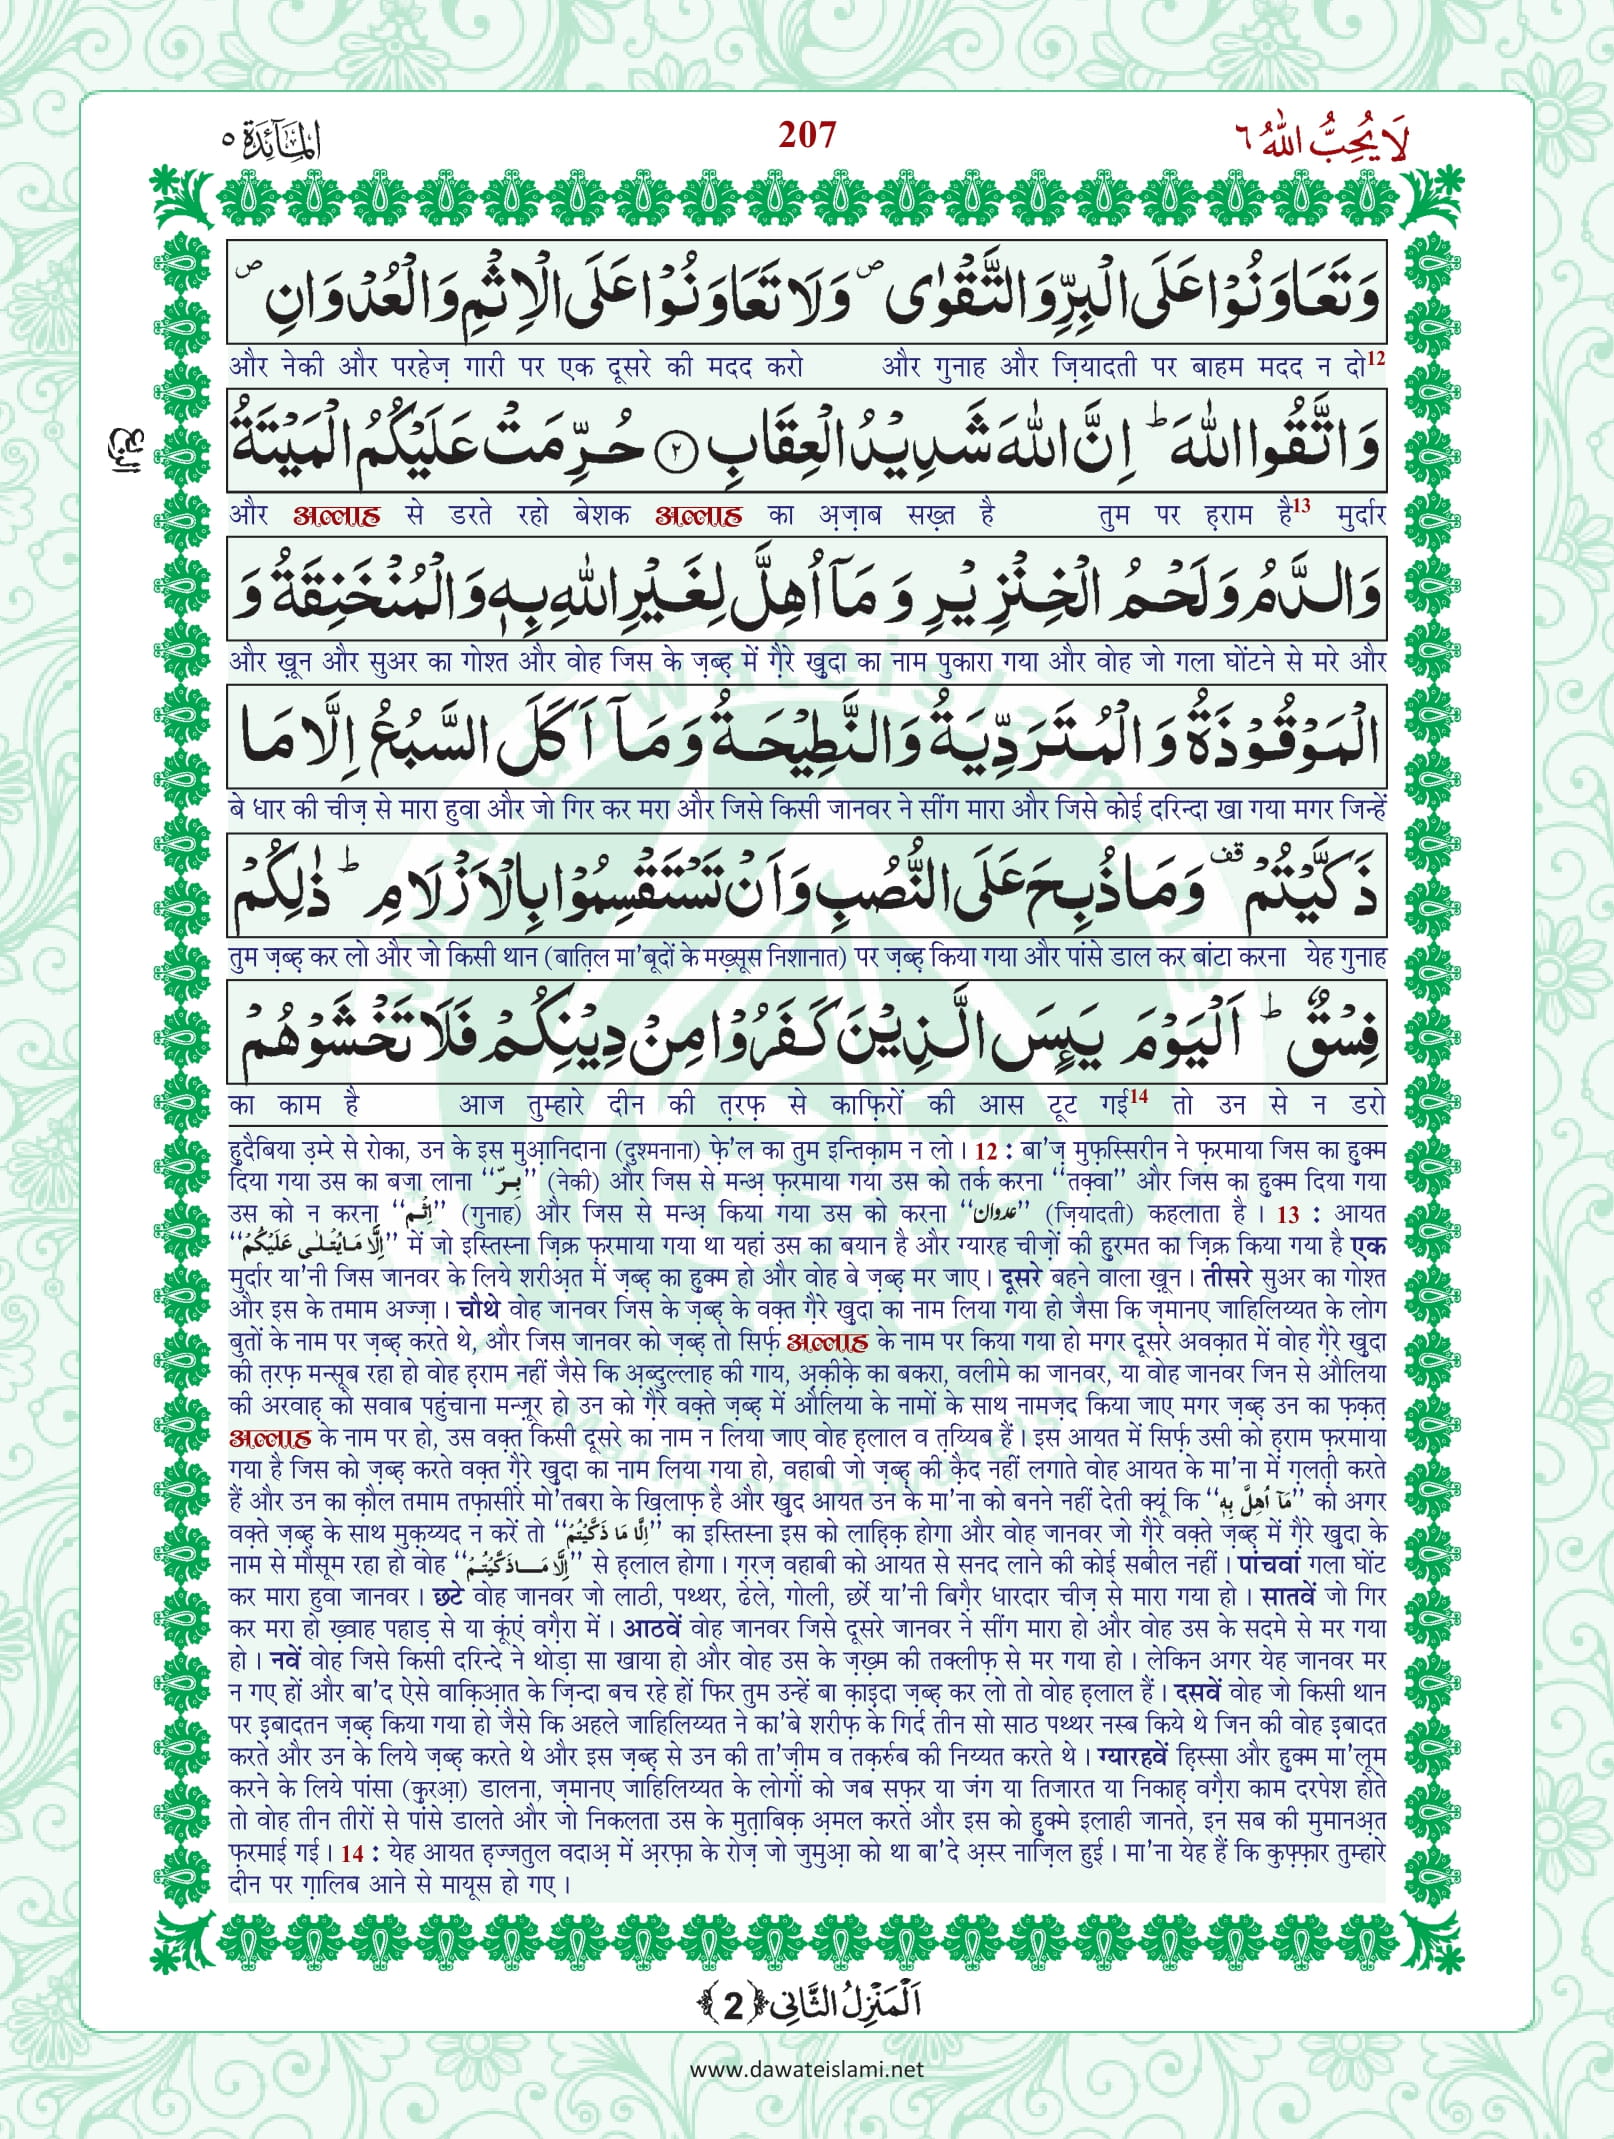 المآئدة ٥
207
لَا يُحِبُّ اللّٰهُ ٦
وَتَعَاوَنُوْا عَلَى الْبِرِّ وَالتَّقْوٰى ۪ وَلَا تَعَاوَنُوْا عَلَى الْاِثْمِ وَالْعُدْوَانِ ۪
और नेकी और परहेज़ गारी पर एक दूसरे की मदद करो और गुनाह और ज़ियादती पर बाहम मदद न दो12
وَاتَّقُوا اللّٰهَ ؕ اِنَّ اللّٰهَ شَدِيْدُ الْعِقَابِ ﴿۲﴾ حُرِّمَتْ عَلَيْكُمُ الْمَيْتَةُ
الربع
और अल्लाह से डरते रहो बेशक अल्लाह का अ़ज़ाब सख़्त है तुम पर ह़राम है13 मुर्दार
وَالدَّمُ وَلَحْمُ الْخِنْزِيْرِ وَمَاۤ اُهِلَّ لِغَيْرِ اللّٰهِ بِهٖ وَالْمُنْخَنِقَةُ وَ
और ख़ून और सुअर का गोश्त और वोह जिस के ज़ब्ह़ में ग़ैरे ख़ुदा का नाम पुकारा गया और वोह जो गला घोंटने से मरे और
الْمَوْقُوْذَةُ وَالْمُتَرَدِّيَةُ وَالنَّطِيْحَةُ وَمَاۤ اَكَلَ السَّبُعُ اِلَّا مَا
बे धार की चीज़ से मारा हुवा और जो गिर कर मरा और जिसे किसी जानवर ने सींग मारा और जिसे कोई दरिन्दा खा गया मगर जिन्हें
ذَكَّيْتُمْ ۫ وَمَا ذُبِحَ عَلَى النُّصُبِ وَاَنْ تَسْتَقْسِمُوْا بِالْاَزْلَامِ ؕ ذٰلِكُمْ
तुम ज़ब्ह़ कर लो और जो किसी थान (बात़िल मा'बूदों के मख़्सूस निशानात) पर ज़ब्ह़ किया गया और पांसे डाल कर बांटा करना येह गुनाह
فِسْقٌ ؕ اَلْيَوْمَ يَىِٕسَ الَّذِيْنَ كَفَرُوْا مِنْ دِيْنِكُمْ فَلَا تَخْشَوْهُمْ
का काम है आज तुम्हारे दीन की त़रफ़ से काफ़िरों की आस टूट गई14 तो उन से न डरो
हुदैबिया उ़म्रे से रोका, उन के इस मुआ़निदाना (दुश्मनाना) फ़े'ल का तुम इन्तिक़ाम न लो। 12 : बा'ज़ मुफ़स्सिरीन ने फ़रमाया जिस का हुक्म
दिया गया उस का बजा लाना ‘‘بِـرّ’’ (नेकी) और जिस से मन्अ़ फ़रमाया गया उस को तर्क करना ‘‘तक़्वा’’ और जिस का हुक्म दिया गया
उस को न करना ‘‘اِثْـم’’ (गुनाह) और जिस से मन्अ़ किया गया उस को करना ‘‘عدوان’’ (ज़ियादती) कहलाता है। 13 : आयत
‘‘اِلَّا مَا يُتْلٰى عَلَيْكُمْ’’ में जो इस्तिस्ना ज़िक्र फ़रमाया गया था यहां उस का बयान है और ग्यारह चीज़ों की हुरमत का ज़िक्र किया गया है एक
मुर्दार या'नी जिस जानवर के लिये शरीअ़त में ज़ब्ह़ का हुक्म हो और वोह बे ज़ब्ह़ मर जाए। दूसरे बहने वाला ख़ून। तीसरे सुअर का गोश्त
और इस के तमाम अज्ज़ा। चौथे वोह जानवर जिस के ज़ब्ह़ के वक़्त ग़ैरे ख़ुदा का नाम लिया गया हो जैसा कि ज़मानए जाहिलिय्यत के लोग
बुतों के नाम पर ज़ब्ह़ करते थे, और जिस जानवर को ज़ब्ह़ तो सिर्फ़ अल्लाह के नाम पर किया गया हो मगर दूसरे अवक़ात में वोह ग़ैरे ख़ुदा
की त़रफ़ मन्सूब रहा हो वोह ह़राम नहीं जैसे कि अ़ब्दुल्लाह की गाय, अ़क़ीक़े का बकरा, वलीमे का जानवर, या वोह जानवर जिन से औलिया
की अरवाह़ को सवाब पहुंचाना मन्ज़ूर हो उन को ग़ैरे वक़्ते ज़ब्ह़ में औलिया के नामों के साथ नामज़द किया जाए मगर ज़ब्ह़ उन का फ़क़त़
अल्लाह के नाम पर हो, उस वक़्त किसी दूसरे का नाम न लिया जाए वोह ह़लाल व त़य्यिब हैं। इस आयत में सिर्फ़ उसी को ह़राम फ़रमाया
गया है जिस को ज़ब्ह़ करते वक़्त ग़ैरे ख़ुदा का नाम लिया गया हो, वहाबी जो ज़ब्ह़ की क़ैद नहीं लगाते वोह आयत के मा'ना में ग़लत़ी करते
हैं और उन का क़ौल तमाम तफ़ासीरे मो'तबरा के ख़िलाफ़ है और ख़ुद आयत उन के मा'ना को बनने नहीं देती क्यूं कि ‘‘مَاۤ اُهِلَّ بِهٖ’’ को अगर
वक़्ते ज़ब्ह़ के साथ मुक़य्यद न करें तो ‘‘اِلَّا مَا ذَكَّيْتُمْ’’ का इस्तिस्ना इस को लाह़िक़ होगा और वोह जानवर जो ग़ैरे वक़्ते ज़ब्ह़ में ग़ैरे ख़ुदा के
नाम से मौसूम रहा हो वोह ‘‘اِلَّا مَا ذَكَّيْتُمْ’’ से ह़लाल होगा। ग़रज़ वहाबी को आयत से सनद लाने की कोई सबील नहीं। पांचवां गला घोंट
कर मारा हुवा जानवर। छटे वोह जानवर जो लाठी, पथ्थर, ढेले, गोली, छर्रे या'नी बिग़ैर धारदार चीज़ से मारा गया हो। सातवें जो गिर
कर मरा हो ख़्वाह पहाड़ से या कूंएं वग़ैरा में। आठवें वोह जानवर जिसे दूसरे जानवर ने सींग मारा हो और वोह उस के सदमे से मर गया
हो। नवें वोह जिसे किसी दरिन्दे ने थोड़ा सा खाया हो और वोह उस के ज़ख़्म की तक्लीफ़ से मर गया हो। लेकिन अगर येह जानवर मर
न गए हों और बा'द ऐसे वाक़िआ़त के ज़िन्दा बच रहे हों फिर तुम उन्हें बा क़ाइदा ज़ब्ह़ कर लो तो वोह ह़लाल हैं। दसवें वोह जो किसी थान
पर इ़बादतन ज़ब्ह़ किया गया हो जैसे कि अहले जाहिलिय्यत ने का'बे शरीफ़ के गिर्द तीन सो साठ पथ्थर नस्ब किये थे जिन की वोह इ़बादत
करते और उन के लिये ज़ब्ह़ करते थे और इस ज़ब्ह़ से उन की ता'ज़ीम व तक़र्रुब की निय्यत करते थे। ग्यारहवें हि़स्सा और हुक्म मा'लूम
करने के लिये पांसा (क़ुरआ़) डालना, ज़मानए जाहिलिय्यत के लोगों को जब सफ़र या जंग या तिजारत या निकाह़ वग़ैरा काम दरपेश होते
तो वोह तीन तीरों से पांसे डालते और जो निकलता उस के मुत़ाबिक़ अ़मल करते और इस को हुक्मे इलाही जानते, इन सब की मुमानअ़त
फ़रमाई गई। 14 : येह आयत ह़ज्जतुल वदाअ़ में अ़रफ़ा के रोज़ जो जुमुआ़ को था बा'दे अ़स्र नाज़िल हुई। मा'ना येह हैं कि कुफ़्फ़ार तुम्हारे
दीन पर ग़ालिब आने से मायूस हो गए।
اَلْمَنْزِلُ الثَّانِي ﴿2﴾
www.dawateislami.net